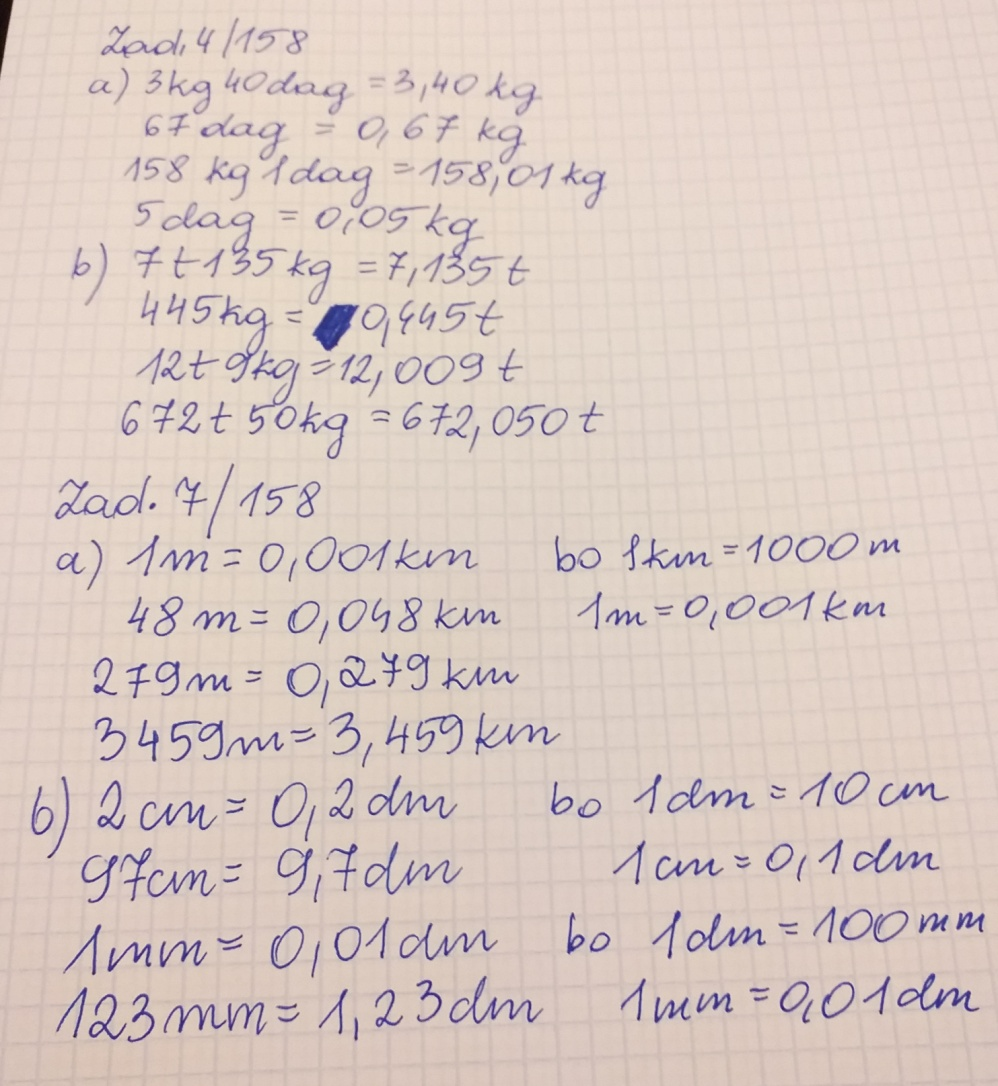 Zad. 4/158
a) 3kg 40dag = 3,40 kg
67 dag = 0,67 kg
158 kg 1dag = 158,01 kg
5 dag = 0,05 kg
b) 7 t 135 kg = 7,135 t
445 kg = 0,445 t
12 t 9kg = 12,009 t
672 t 50kg = 672,050 t
Zad. 7/158
a) 1m = 0,001 km bo 1km = 1000 m
48 m = 0,048 km 1m = 0,001 km
279m = 0,279 km
3459m = 3,459 km
b) 2 cm = 0,2 dm bo 1dm = 10 cm
97cm = 9,7dm 1cm = 0,1dm
1mm = 0,01dm bo 1dm = 100 mm
123 mm = 1,23dm 1mm = 0,01dm